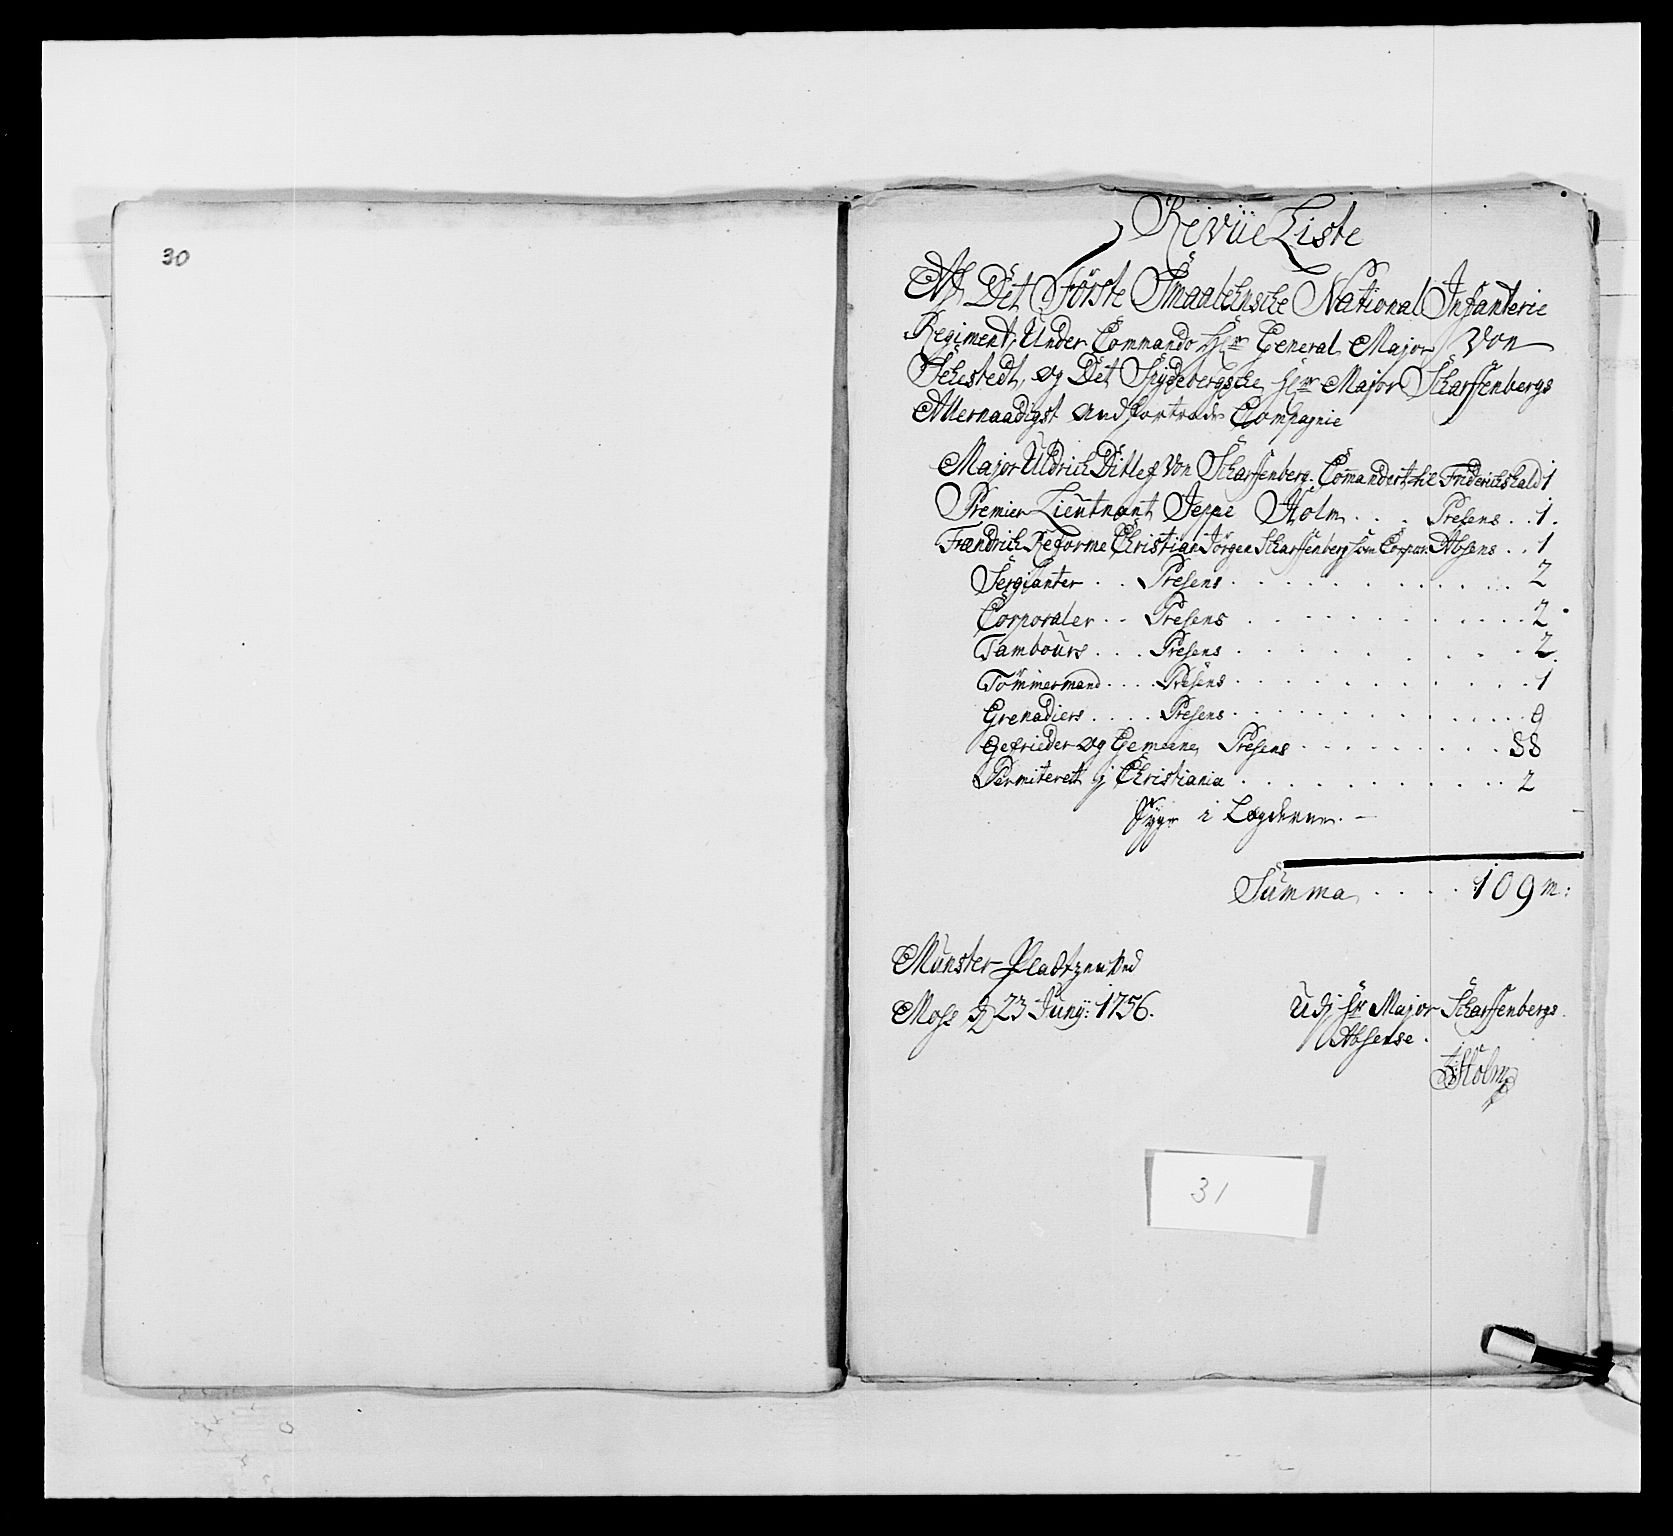 30
Revüe Liste
Af Det Förste Smaalehnske National Infanterie
Regiment, Under Commando Herr General Major Von
Sehestedt, og Det Spydebergske Herr Major Scharffenbergs
Allernaadigst andfortrode Compagnie
Major Uldrich Ditlef Von Scharffenberg. Comandert til Friderichshald 1
Premier Lieutnant Jeppe Holm . . . Presens . . 1.
Fændrich Reforme Christian Jörgen Scharffenberg som Corpor. Absens . . 1
Sergianter . . Presens . . . . . . . . . . . 2
Corporaler . . Presens . . . . . . . . . . . 2
Tambours . . . Presens . . . . . . . . . . 2
Tömmermand . . . . Presens . . . . . . . . . . 1
Grenadiers . . . . Presens . . . . . . . . . . 9
Gefrieder og Gemeene Presens . . . . . . . . . 88
Permiteret j Christiania . . . . . . . . . . 2
Syge i Lægderne. —
Summa . . . . 109 m:
Munster Pladtzen ved
Moss d 23 Juny: 1756.
Udj Hr Major Scharffenbergs
Absense.
J: Holm
31